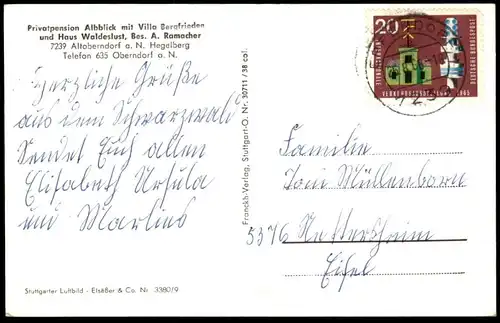 Privatpension Albblick mit Villa Bergfrieden
und Haus Waldeslust, Bes. A. Ramacher
7239 Altoberndorf a. N. Hegelberg
Telefon 635 Oberndorf a. N.
Herzliche Grüße
aus dem Schwarzwald
Sendet Euch allen
Elisabeth Ursula
und Marlies
Stuttgarter Luftbild - Elsäßer & Co. Nr. 3380/9
Franckh-Verlag, Stuttgart-O. Nr. 30711 / 38 col.
20
DEUTSCHE BUNDESPOST
Familie
Toni Müllenborn
5376 Nettersheim
Eifel